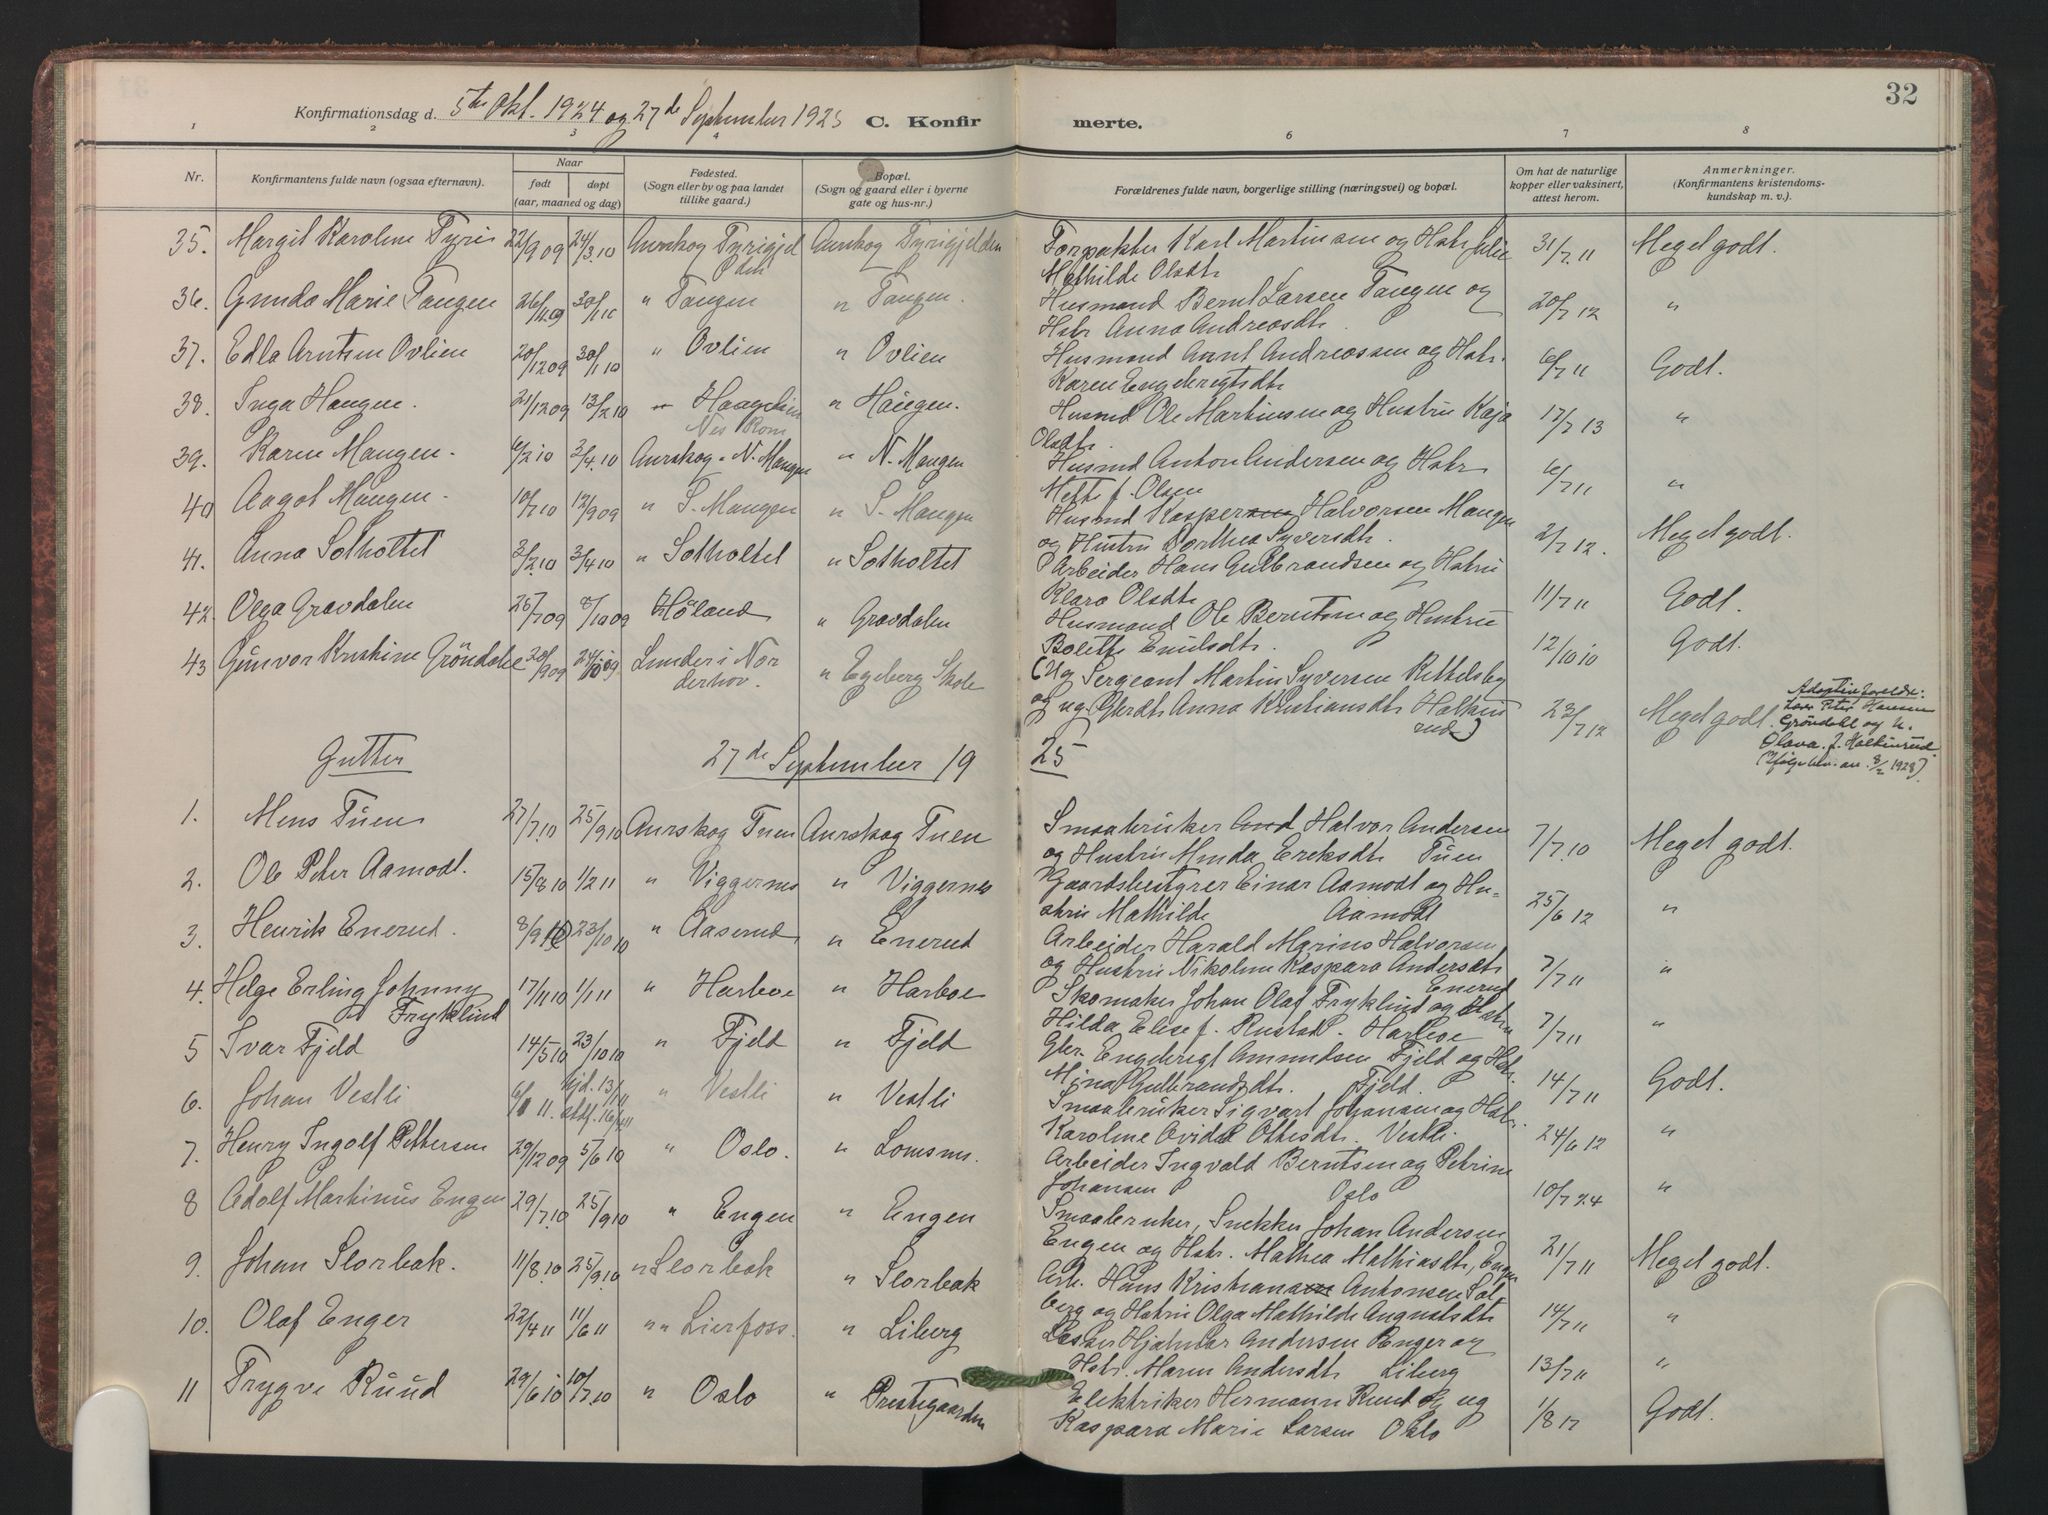 32
Konfirmationsdag d. 5te Okt. 1924 og 27de September 1925 C. Konfirmerte.
1 2 3 4 6 7 8
Nr. Konfirmantens fulde navn (ogsaa efternavn). Naar født døpt (aar, maaned og dag) Fødested. (Sogn eller by og paa landet tillike gaard.) Bopæl. (Sogn og gaard eller i byerne gate og hus-nr.) Forældrenes fulde navn, borgerlige stilling (næringsvei) og bopæl. Om hat de naturlige kopper eller vaksinert, attest herom. Anmerkninger. (Konfirmantens kristendoms-kundskap m. v.).
35. Margit Karoline Tyri 22/9 09 24/3.10 Aurskog Tyrigjelden Aurskog Tyrigjelden Forpakter Karl Martinsen og Hstr Julie 31/7.11 Meget godt.
Mathilde Olsdtr
36. Gunda Marie Tangen 26/11.09 30/1 10 " Tangen " Tangen. Husmand Bernt Larsen Tangen og 20/7 12 "
Hstr Anna Andreasdtr.
37. Edla Arntsen Ovlien 20/12 09 30/1 10 " Ovlien " Ovlien Husmand Arnt Andreassen og Hstr. 6/7 11 Godt.
Karen Engebregtsdtr
38. Inga Haugen. 21/12 09 13/2 10 " Nes Rom " Haugen. Husmd Ole Martinsen og Hustru Kaja 17/7 13 "
Olsdtr.
39. Karen Mangen. 6/2 10 3/4.10 Aurskog - N. Mangen " N. Mangen Husmd Anton Andersen og Hstr 6/7 11 "
Mette f. Olsen
40 Aagot Mangen. 10/7 10 12/9 09 " S. Mangen " S. Mangen Husmd Kasper Halvorsen Mangen 2/7 12. Meget godt.
og Hustru Dorthea Syversdtr.
41. Anna Solholtet 3/2.10 3/4 10 " Solholtet " Solholtet Arbeider Hans Gulbrandsen og Hstru 11/7 11 Godt.
Klara Olsdtr
42. Olga Gravdalen 25/7 09 8/10 09 Høland " Gravdalen Husmand Ole Berntsen og Hustru 12/10 10 Godt.
Bolette Emilsdtr.
43 Gunvor Kristine Gröndahl 20/9 09 24/10 09 Lunder i Norderhov. " Egeberg Skole (Ug Sergeant Martin Syversen Kittelsby 23/7 12 Meget godt.
og ug. Grdtr Anna Kristiansdtr Halkinrud)
Adoptivforeldre:
Lærer Peter Hansen
Gröndahl og h.
Olava f. Halkinrud
(Ifølge bev. av 8/2 1928).
Gutter 27de September 1925
1. Mens Tuen 27/7.10 25/9 10 Aurskog Tuen Aurskog Tuen Smaabruker Halvor Andersen 7/7.10 Meget godt.
og Hustru Minda Eriksdtr Tuen
2. Ole Peter Aamodt. 15/8 10 1/2 11 " Viggernes " Viggernes Gaardsbestyrer Einar Aamodt og Hu- 25/6 12 "
stru Mathilde Aamodt
3. Henrik Enerud. 8/9 10 23/10 10 " Aaserud " Enerud Arbeider Harald Marius Halvorsen 7/7 11 "
og Hustru Nikoline Kaspara Andersdtr Enerud
4. Helge Erling Johnny Fryklind 17/11 10 1/1 11 " Harboe " Harboe Skomaker Johan Olaf Fryklind og Hstru 7/7 11 "
Hilda Elise f. Rustad. Harboe
5 Ivar Fjeld 14/5 10 23/10 10 " Fjeld " Fjeld Gbr. Engebregt Amundsen Fjeld og Hstr. 14/7 11 Godt.
Mina Gulbrandsdtr. Fjeld.
6. Johan Vestli 6/1 11. hjd. 13/1 11 stdf. 16/4 11 " Vestli " Vestli Smaabruker Sigvart Johansen og Hstr. 24/6 12 "
Karoline Ovidie Ottesdtr. Vestli.
7. Henry Ingolf Pettersen 29/12 09 5/6 10 " Oslo. " Lomsnes. Arbeider Ingvald Berntsen og Petrine 10/7 24 "
Johansen Oslo
8 Adolf Martinus Engen 29/7.10 25/9 10 " Engen " Engen Smaabruker, Snekker Johan Andersen 21/7 11 Meget godt.
Engen og Hstr. Mathea Mathiasdtr, Engen
9. Johan Slorbak. 11/8.10 25/9.10 " Slorbak " Slorbak Arb. Hans Kristian Antonsen Sol- 14/7 11 "
berg og Hstru Olga Mathilde Augustsdtr
10. Olaf Enger 22/4 11 11/6 11 " " Lierfoss. " Liberg Hjalmar Andersen Enger og 13/7 11 "
Hstr. Maren Andersdtr Liberg
11 Trygve Ruud 29/6 10 10/7.10 " Oslo " Prestegaarden Elektriker Hermann Ruud og ug 1/8 17 Godt.
Kaspara Marie Larsen Oslo